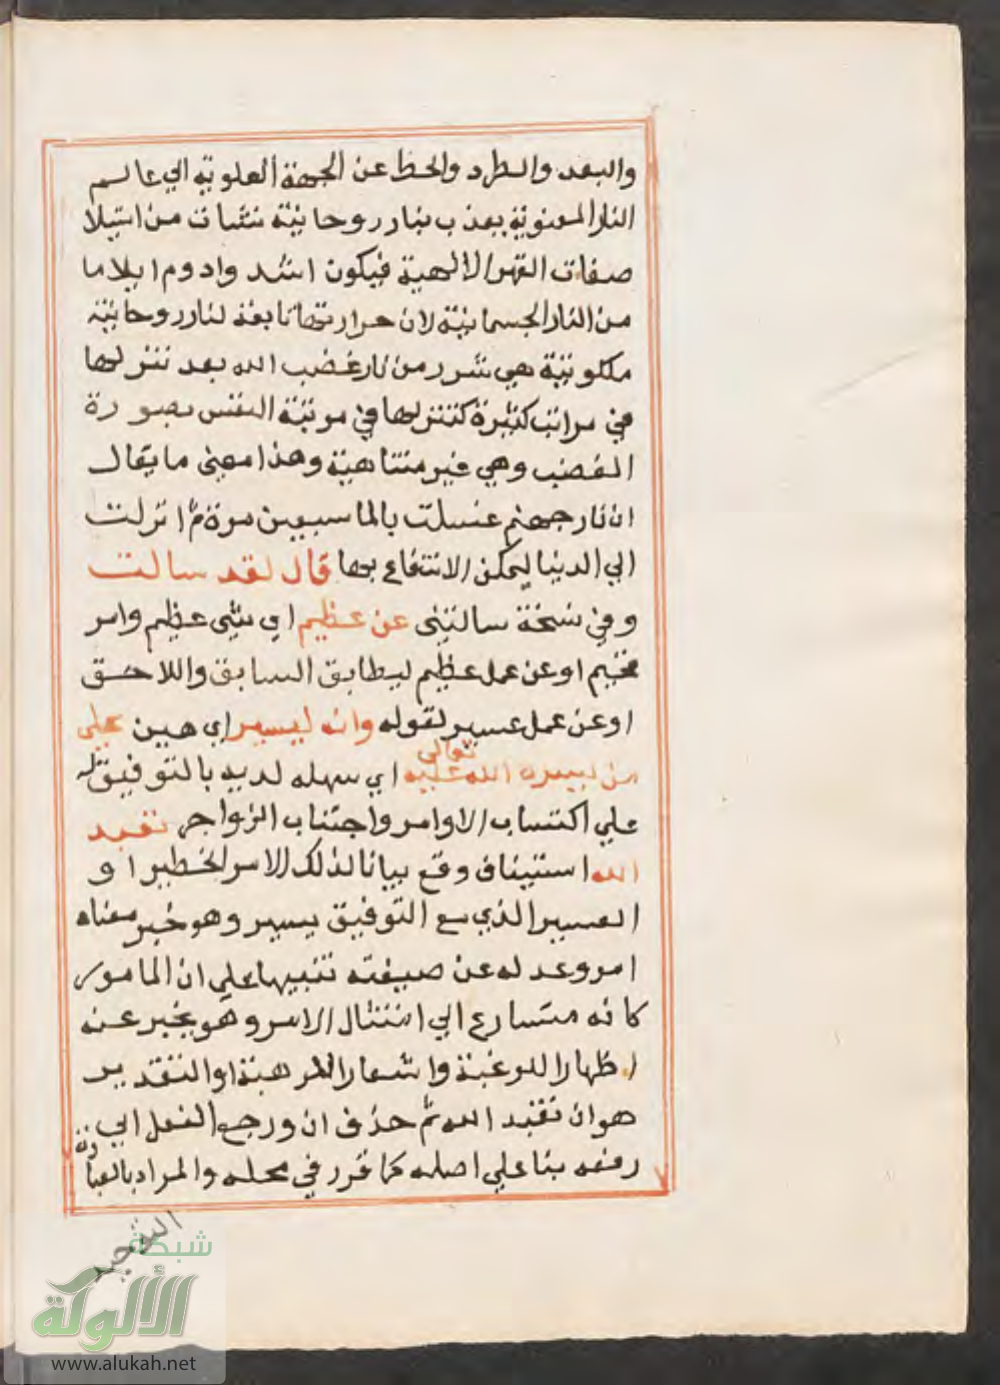 والبعد والطرد والحط عن الجهة العلوية الي عالم
النار المعنوية يعذب بنار روحانية نشات من استيلا
صفات القهر الالهية فيكون اشد وادوم ايلاما
من النار الجسمانية لان حرارتها تابعة لنار روحانية
ملكوتية هي شرر من نار غضب الله بعد تنزلها
في مراتب كثيرة كتنزلها في مرتبة النفس بصورة
الغضب وهي غير متناهية وهذا معني ما يقال
ان نار جهنم غسلت بالما سبعين مرة ثم انزلت
الي الدنيا ليمكن الانتفاع بها قال لقد سالت
وفي نسخة سالتني عن عظيم اي شي عظيم وامر
فخيم او عن عمل عظيم ليطابق السابق واللاحق
او عن عمل عسير لقوله وانه ليسير اي هين علي
من يسره الله تعالي عليه اي سهله لديه بالتوفيق له
علي اكتساب الاوامر واجتناب الزواجر تعبد
الله استيناف وقع بيانا لذلك الامر الخطير او
العسير الذي مع التوفيق يسير وهو خبر معناه
امر وعدله عن صيغته تنبيها علي ان المامور
كانه متسارع الي امتثال الامر وهو يخبر عنه
اظهارا للرغبة واشعارا للرهبة او التقدير
هو ان تعبد الله ثم حذف ان ورجع الفعل الي
رفعه بنا علي اصله كما قرر في محله والمراد بالعبادة
التوحيد
شبكة
الألوكة
www.alukah.net